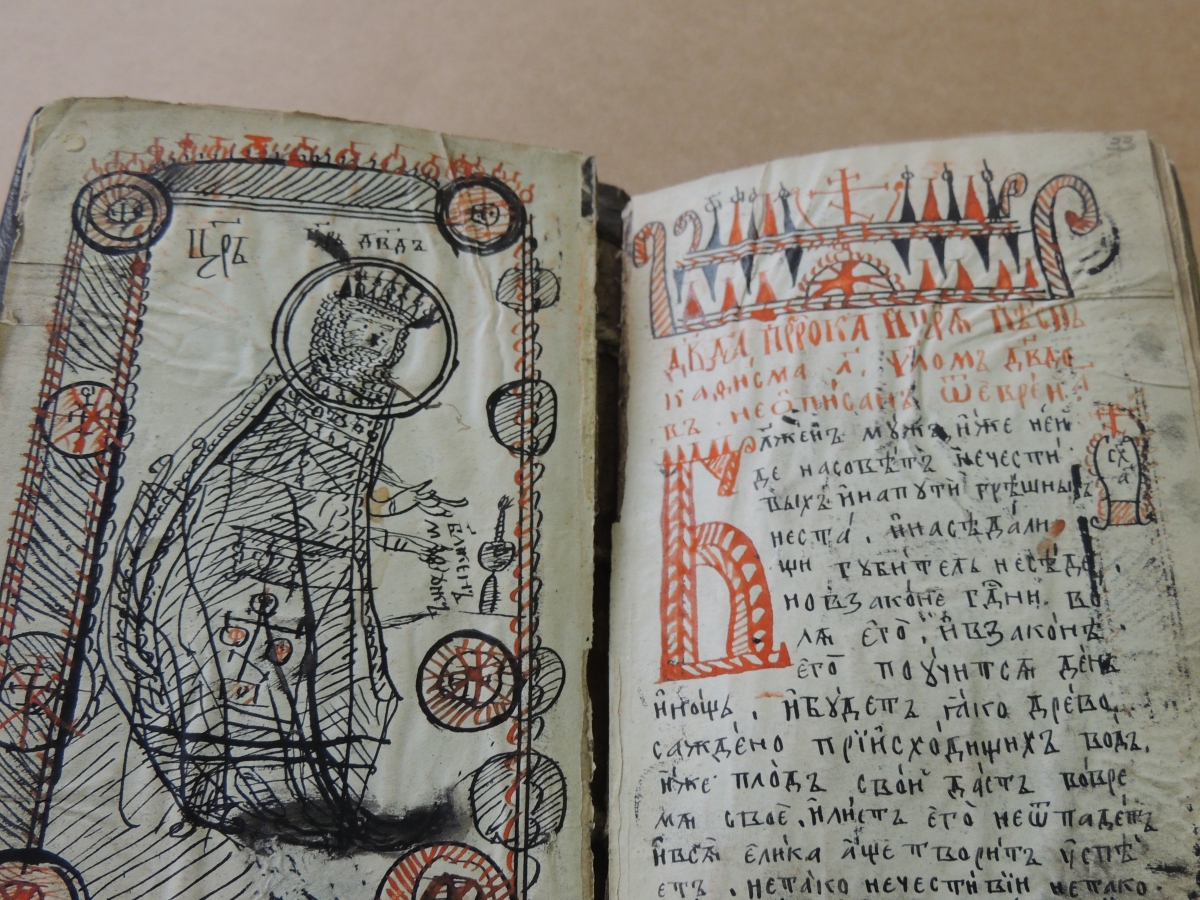 Цр҃ь
Цр҃ь Дв҃дъ
Бл҃женъ
мужъ
33
Дв҃да, прⷪ҇рока и цр҃ѧ пѣснь
каѳисма а҃. ѱаломъ дв҃дѹ
не ѡ҆писанъ ѿ еврей
Бл҃женъ мужъ, и҆же не и҆
де на совѣтъ нечести
выхъ и҆ на пути грѣшныхъ
не ста̀. и҆ на сѣдали
щи губитель не сѣде.
но в законе гдⷭ҇ни. во
лѧ его̀, и҆ в законѣ
его̀ поучитсѧ де́нь
и҆ но́щь. и҆ бу́детъ ꙗ҆́ко дре́во
сажде́но при и҆схо́дищихъ водъ.
и҆́же пло́дъ сво́й да́стъ во вре
мѧ своѐ. и҆ ли́стъ его̀ не ѿпаде́тъ
и҆ всѧ̀ ели́ка а҆́ще твори́тъ ѹ҆спѣ
етъ. не та́ко нечести́вїи не тако.
сх
а